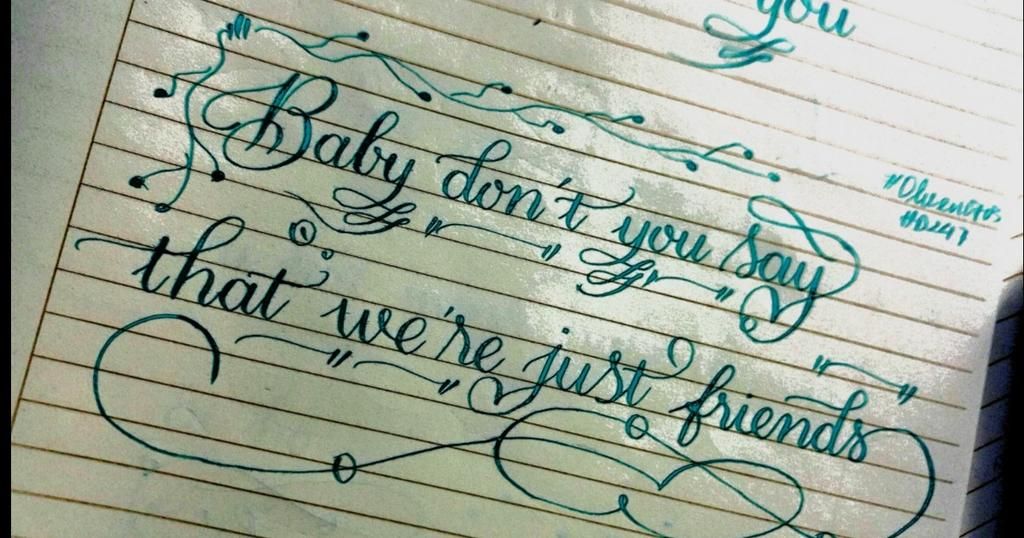 you
Baby don't you say
that we're just friends